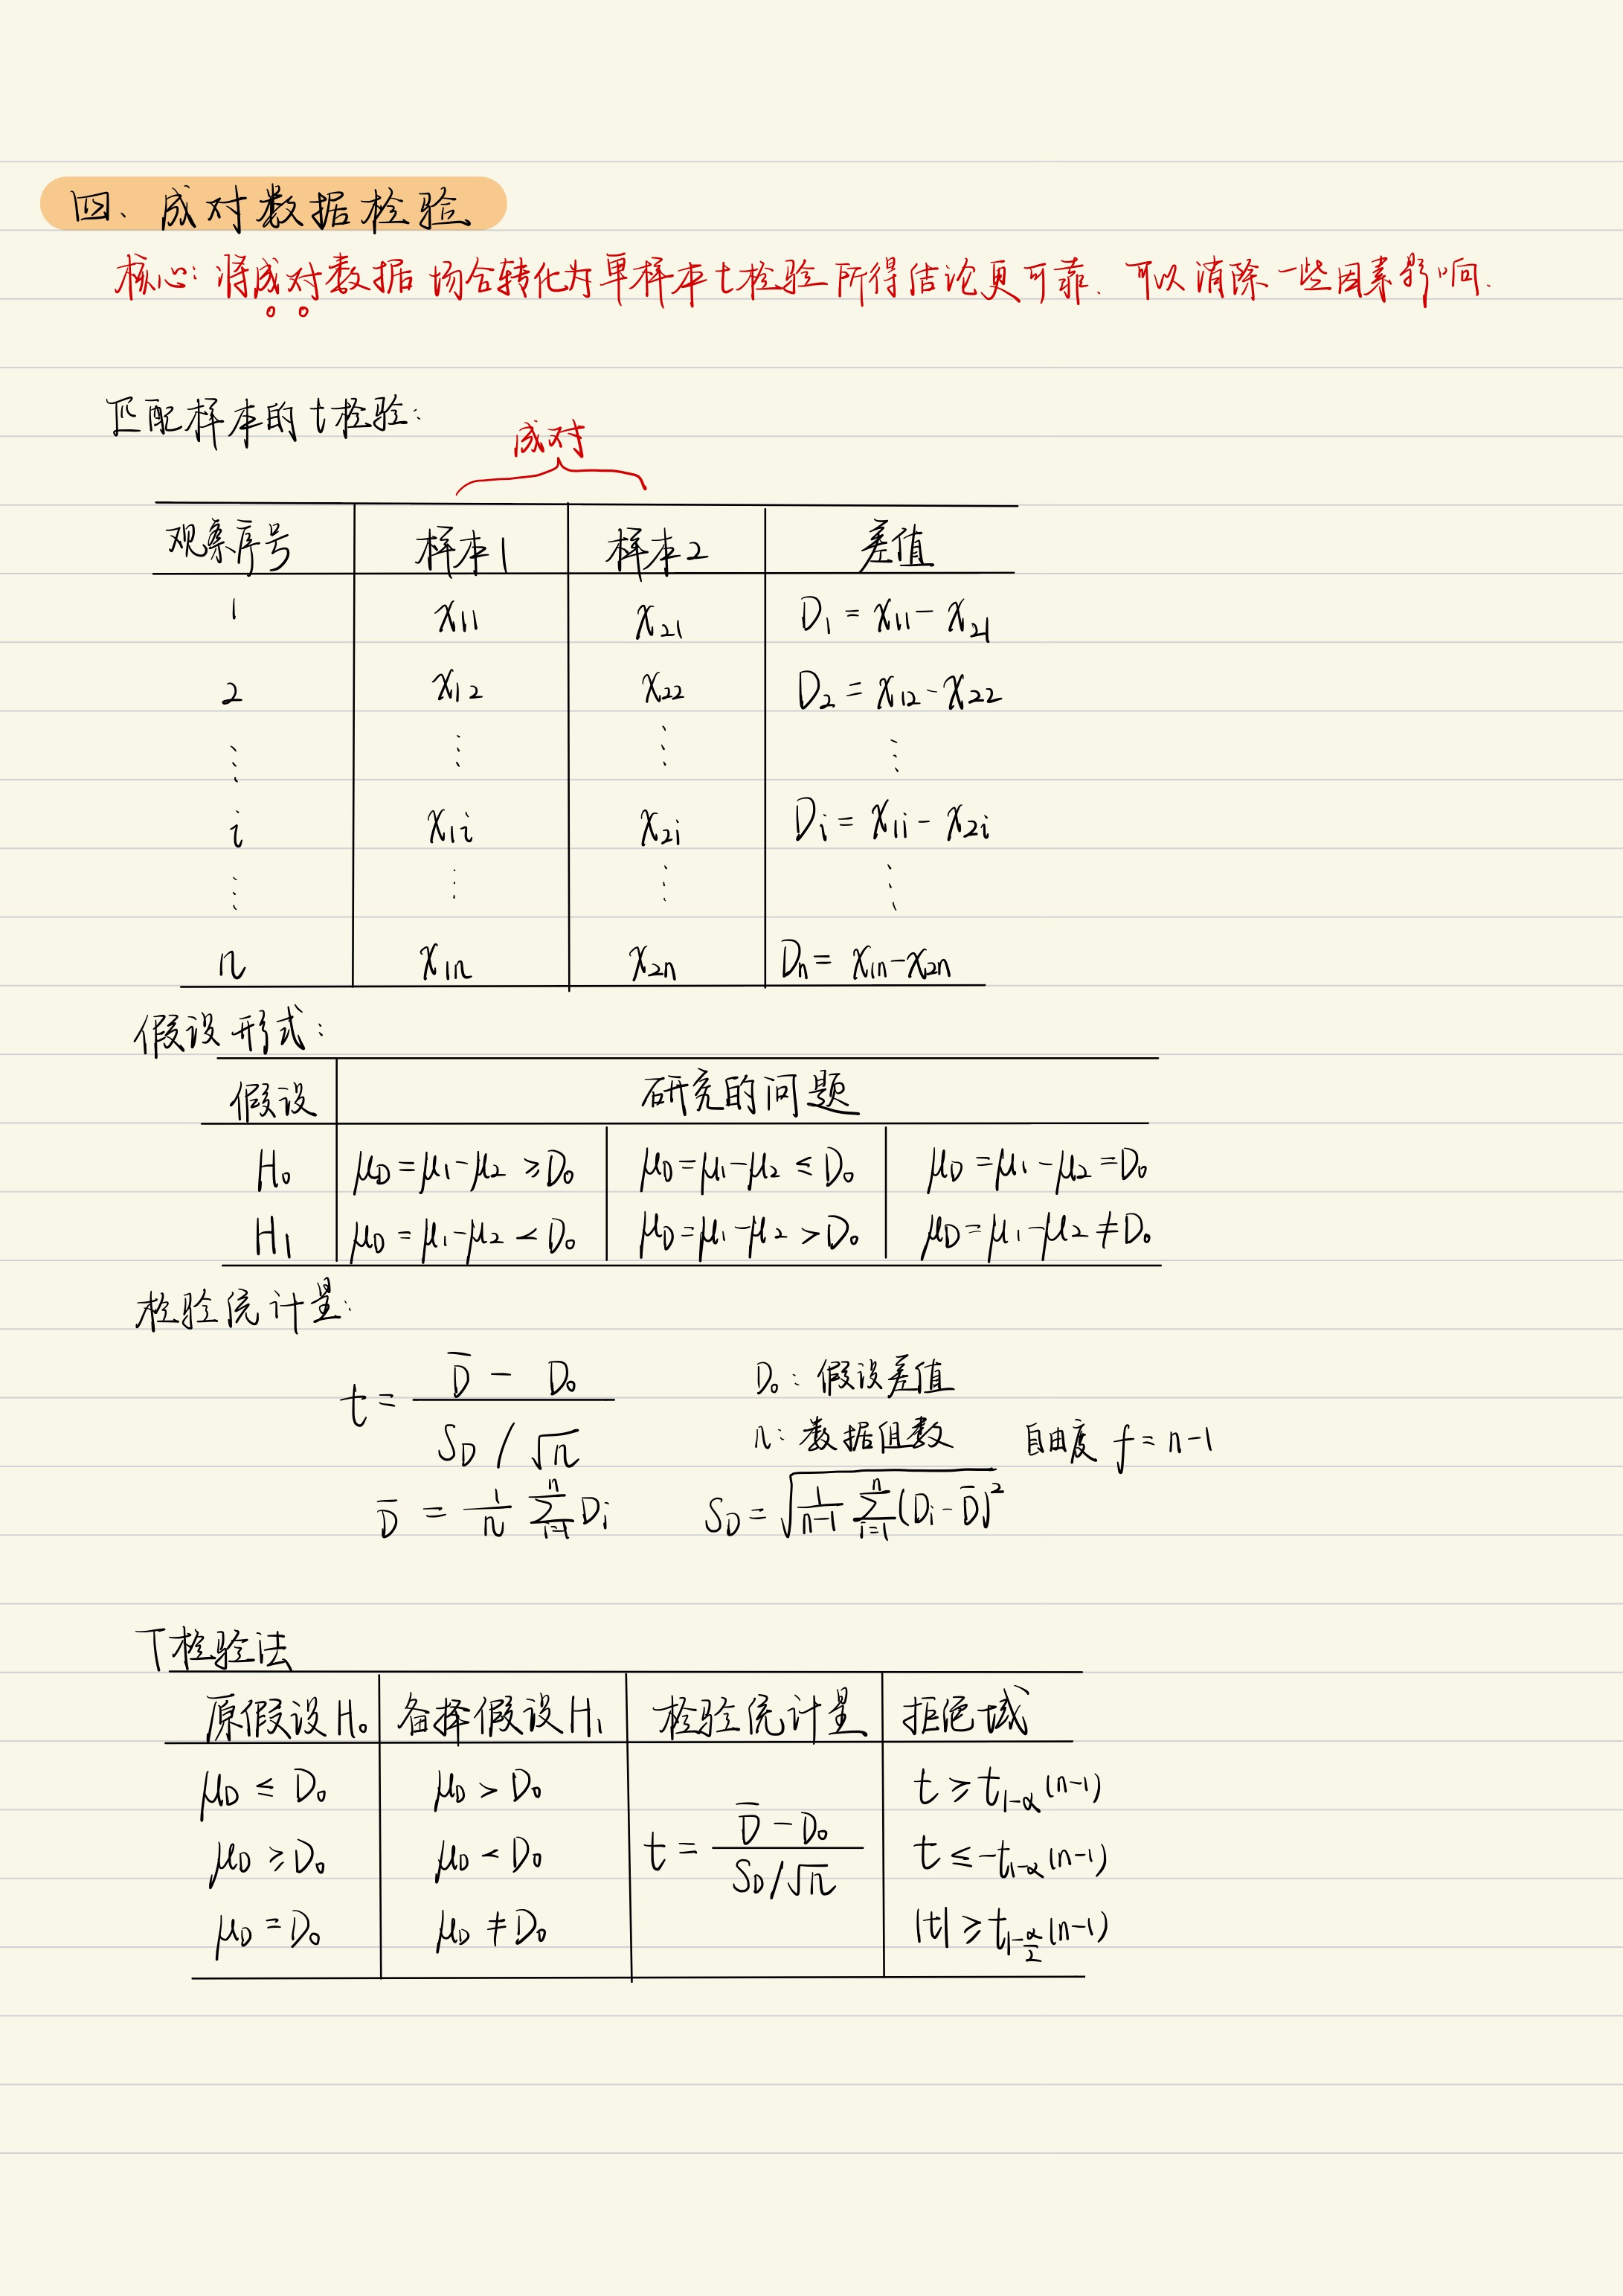 四、成对数据检验
核心:将成对数据场合转化为单样本t检验所得结论更可靠.可以消除一些因素影响.
匹配样本的t检验:
成对
观察序号 样本1 样本2 差值
1 x₁₁ x₂₁ D₁ = x₁₁ - x₂₁
2 x₁₂ x₂₂ D₂ = x₁₂ - x₂₂
⋮ ⋮ ⋮ ⋮
i x₁ᵢ x₂ᵢ Dᵢ = x₁ᵢ - x₂ᵢ
⋮ ⋮ ⋮ ⋮
n x₁ₙ x₂ₙ Dₙ = x₁ₙ - x₂ₙ
假设形式:
假设 研究的问题
H₀ μ_D = μ₁ - μ₂ ≥ D₀ μ_D = μ₁ - μ₂ ≤ D₀ μ_D = μ₁ - μ₂ = D₀
H₁ μ_D = μ₁ - μ₂ < D₀ μ_D = μ₁ - μ₂ > D₀ μ_D = μ₁ - μ₂ ≠ D₀
检验统计量:
t = (D̄ - D₀) / (S_D / √n) D₀: 假设差值
n: 数据组数 自由度 f = n-1
D̄ = 1/n ∑_{i=1}^{n} Dᵢ S_D = √(1/(n-1) ∑_{i=1}^{n} (Dᵢ - D̄)²)
T检验法
原假设H₀ 备择假设H₁ 检验统计量 拒绝域
μ_D ≤ D₀ μ_D > D₀ t ≥ t_{1-α}(n-1)
μ_D ≥ D₀ μ_D < D₀ t = (D̄ - D₀) / (S_D/√n) t ≤ -t_{1-α}(n-1)
μ_D = D₀ μ_D ≠ D₀ |t| ≥ t_{1-α/2}(n-1)